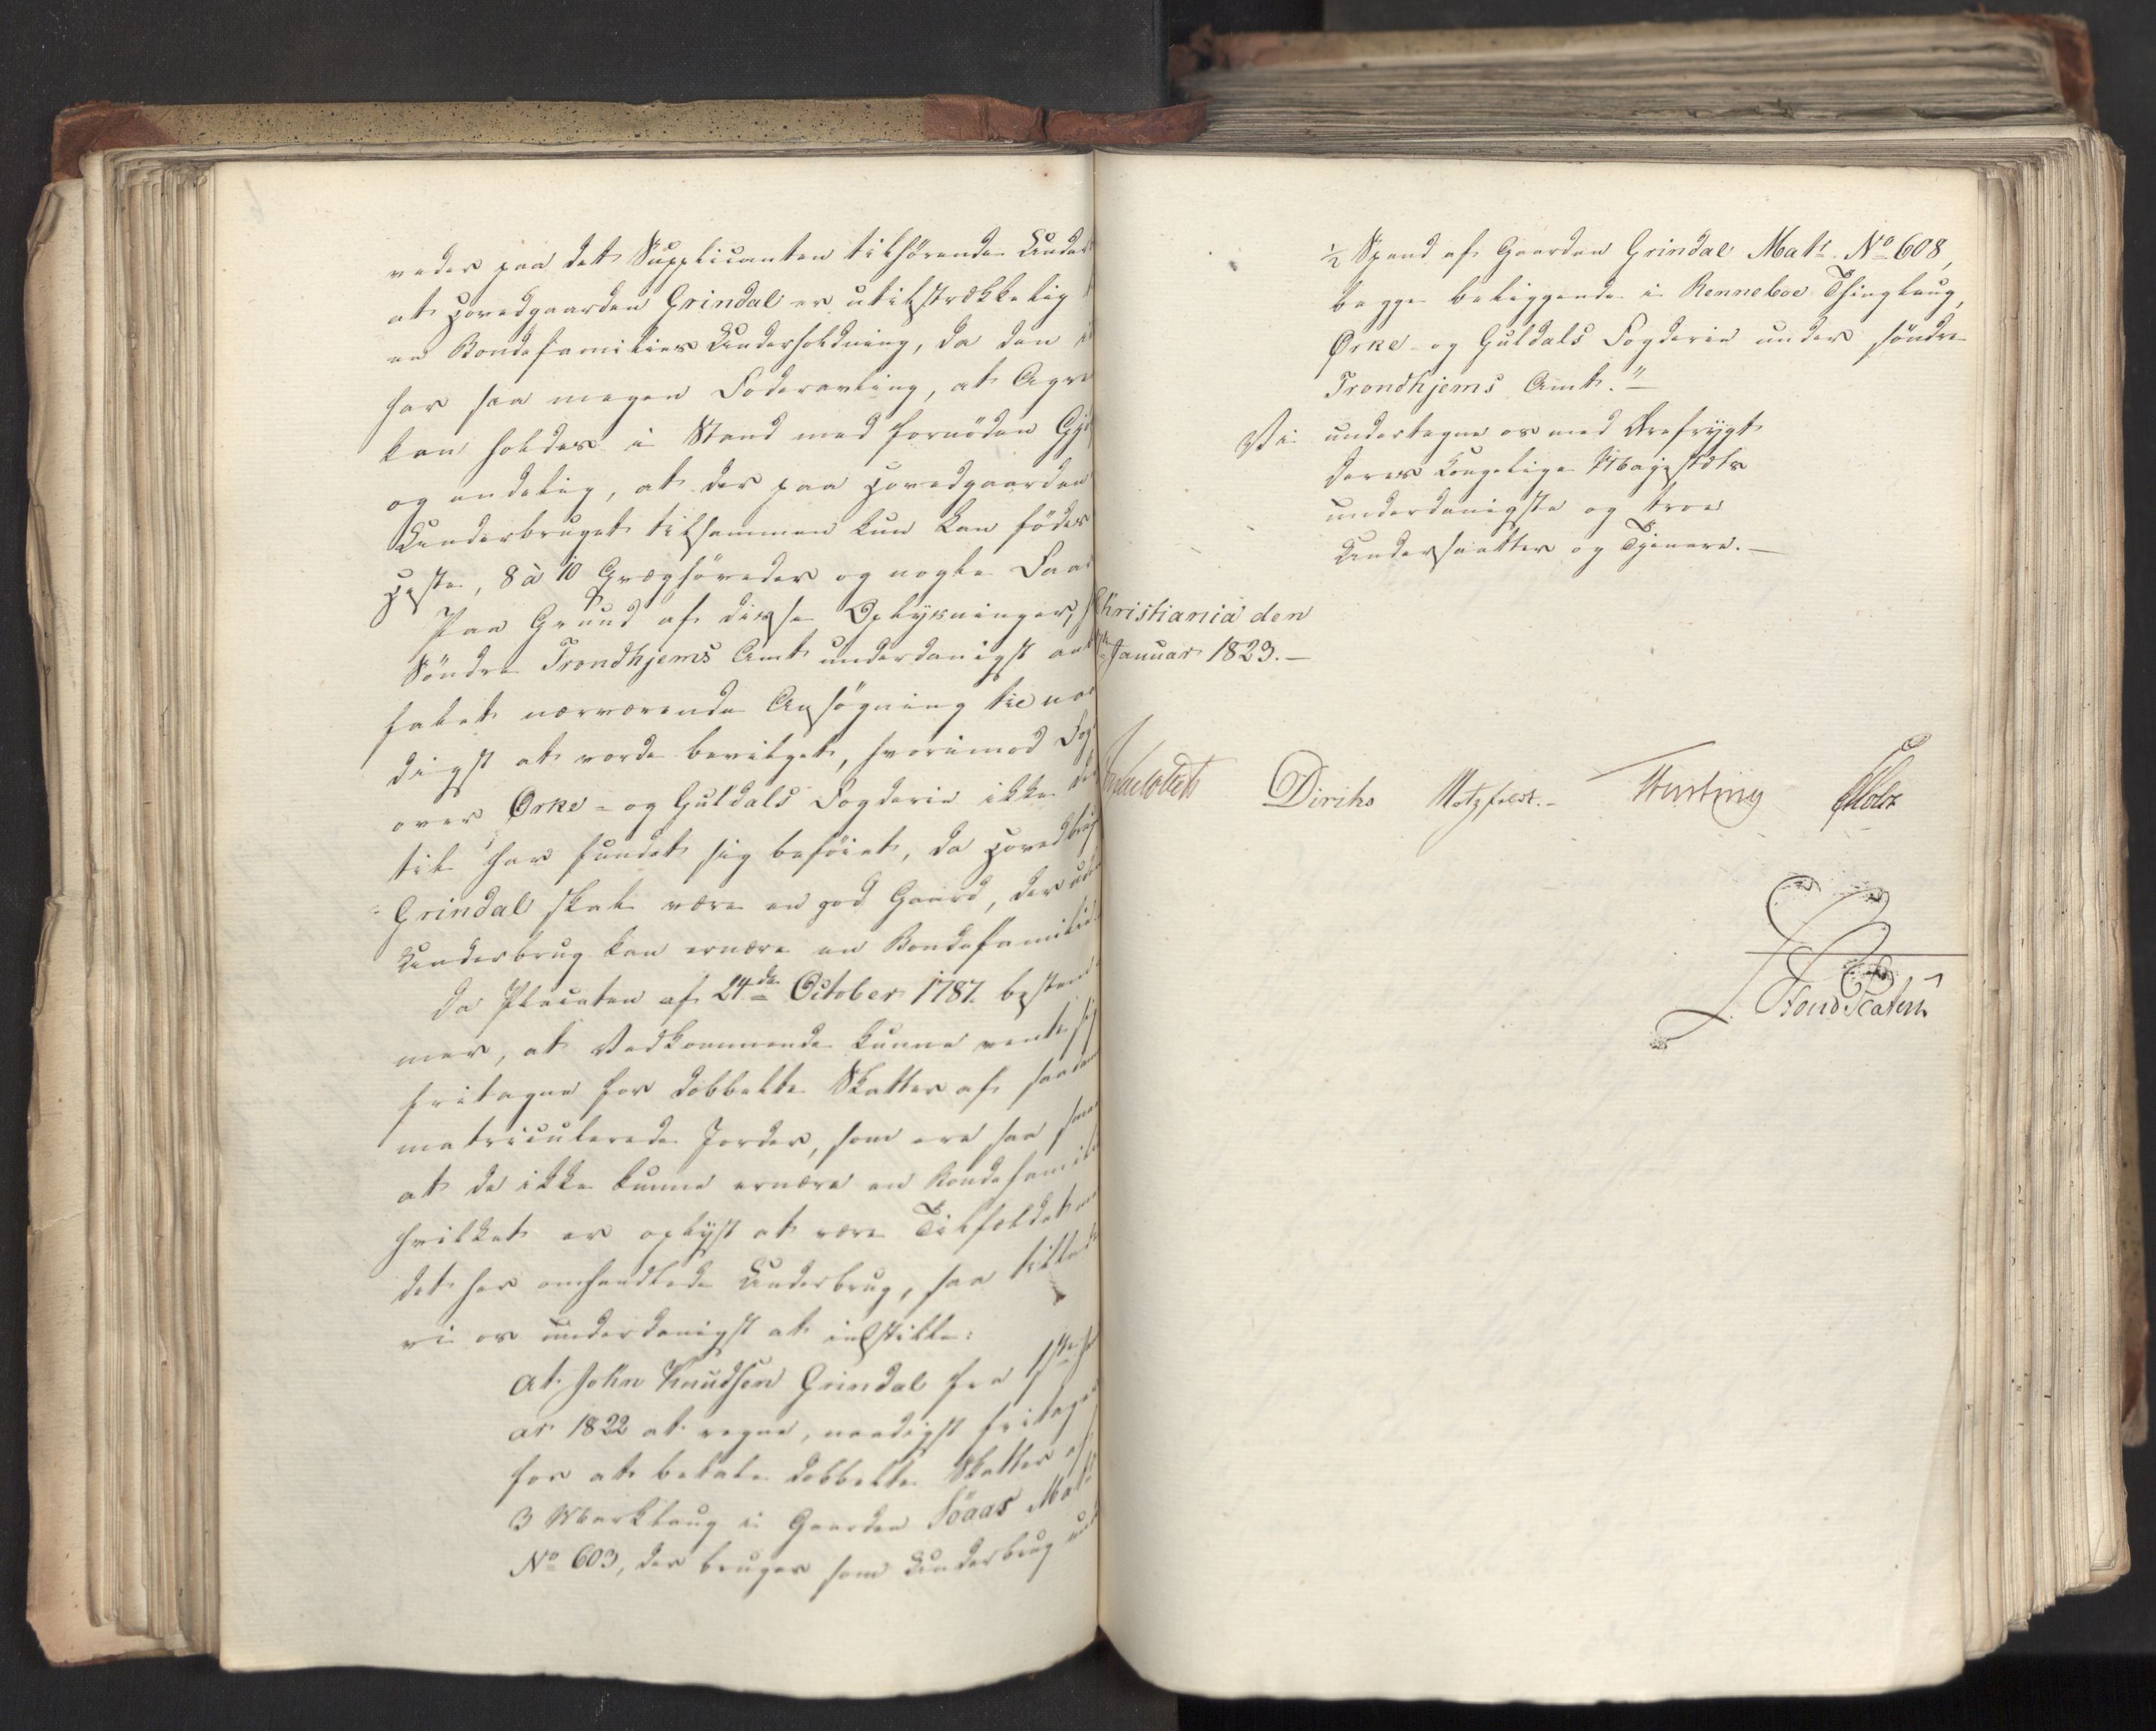 veder paa det Supplicanten tilhørende Under
at Hovedgaarden Grindal er utilstrækkelig
en Bondefamilies Underholdning, da den
har saa megen Foderavling, at Agre
kan holdes i Stand med fornøden Gjö
og endelig, at der paa Hovedgaarden
Underbruget tilsammen kun kan fødes
Heste, 8 à 10 Græshöveder og nogle Faar
Paa Grund af disse Oplysninger,
Söndre Trondhjems Amt underdanigst an
falet nærværende Ansögning til naa
digst at vorde bevilget, hvorimod Fog
over Orke- og Guldals Fogderie ikke der
til har fundet sig beföiet, da Hovedbrug
Grindal skal være en god Gaard, der uden
Underbrug kan ernære en Bondefamilie.
Da Placaten af 24de October 1787 bestem
mer, at Vedkommende kunne vente sig
fritagne for dobbelte Skatter af saadan
matriculerede Jorder, som ere saa smaa
at de ikke kunne ernære en Bondefamilie
hvilket er oplyst at være Tilfældet
det her omhandlede Underbrug, saa tillade
vi os underdanigst at indstille:
At John Knudsen Grindal fra 1ste
ar 1822 at regne, naadigst fritages
for at betale dobbelte Skatter af
3 Marklaug i Gaarden Söaas Matr
No 603, der bruges som Underbrug und
1/2 Spand af Gaarden Grindal Matr. No 608,
begge beliggende i Renneboe Thinglaug,
Orke- og Guldals Fogderie under söndre
Trondhjems Amt."
Vi undertegne os med Ærefrygt
Deres Kongelige Majestæts
underdanigste og troe
Undersaatter og Tjenere.
Christiania den
Januar 1823.
Diriks Motzfeldt. Holst